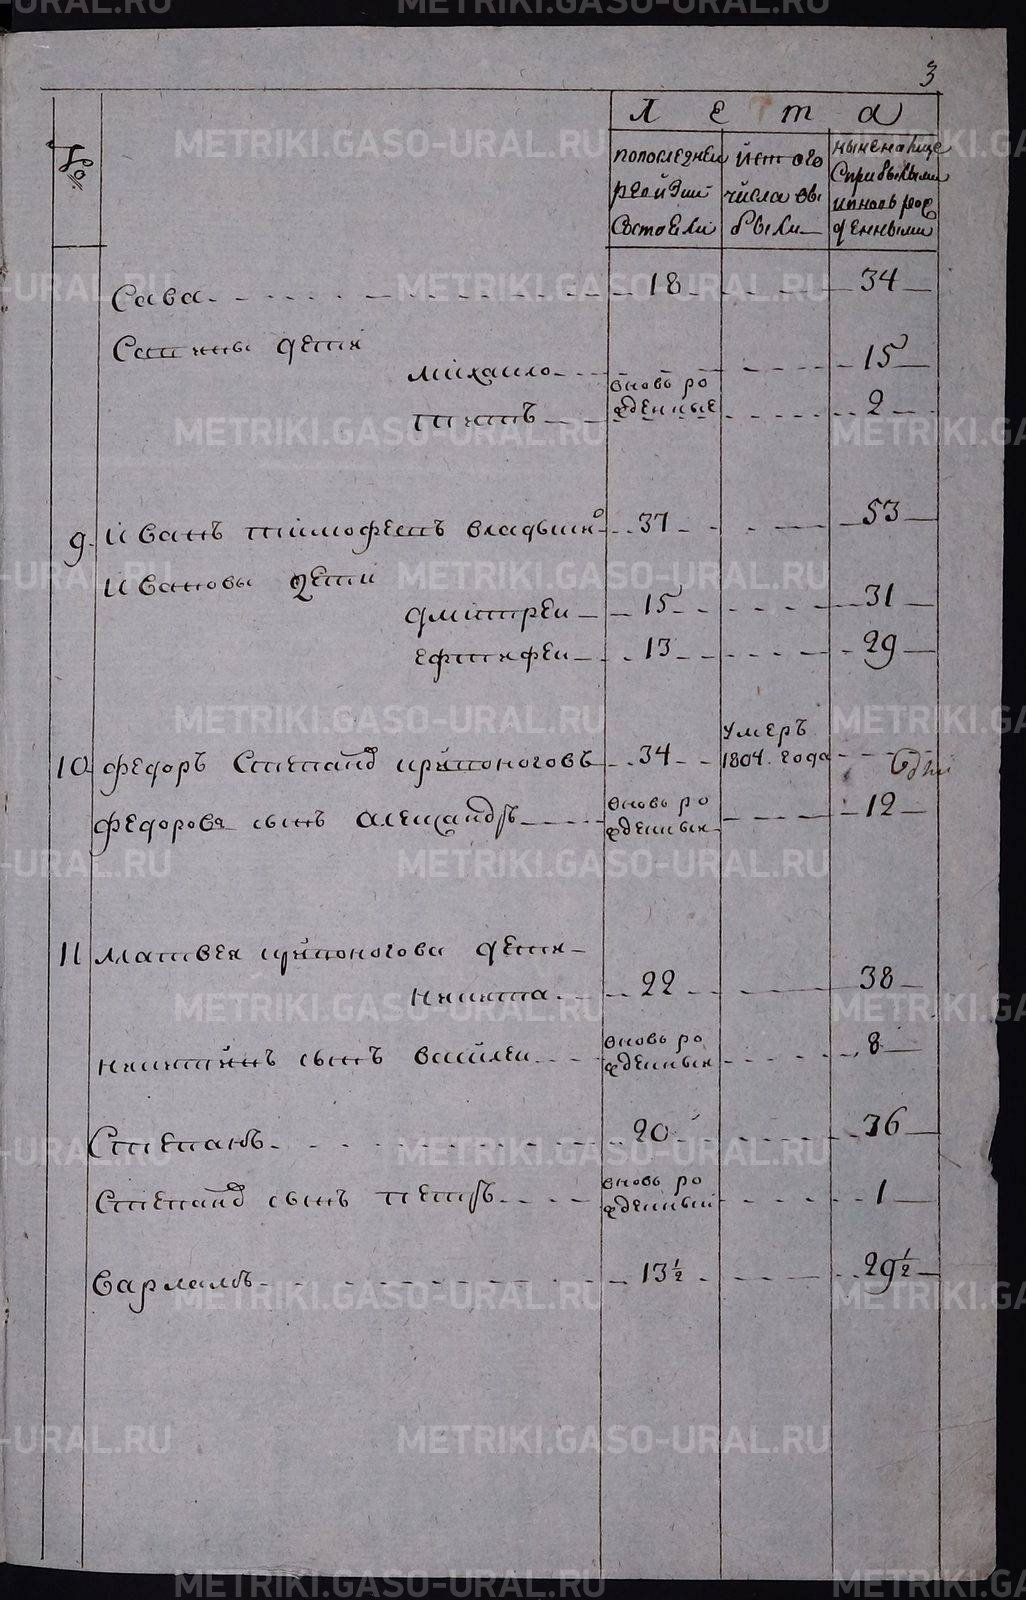 3
№
Лета
по последней ревизии состояли
из того числа выбыли
ныне на лице с прибылыми и вновь рожденными
Сава 18 34
Савины дети
михаило 15
титъ вновь рожденные 2
9 иванъ тимофеевъ владыкинъ 37 53
ивановы дети
дмитреи 15 31
ефтифеи 13 29
10 федоръ Степановъ 34 умеръ 1804. года
федорова сынъ александръ вновь рожденныя 12
11 матвея дети
никита 22 38
никитинъ сынъ василеи вновь рожденныя 8
Степанъ 20 36
Степановъ сынъ петръ вновь рожденный 1
варламъ 13½ 29½
METRIKI.GASO-URAL.RU